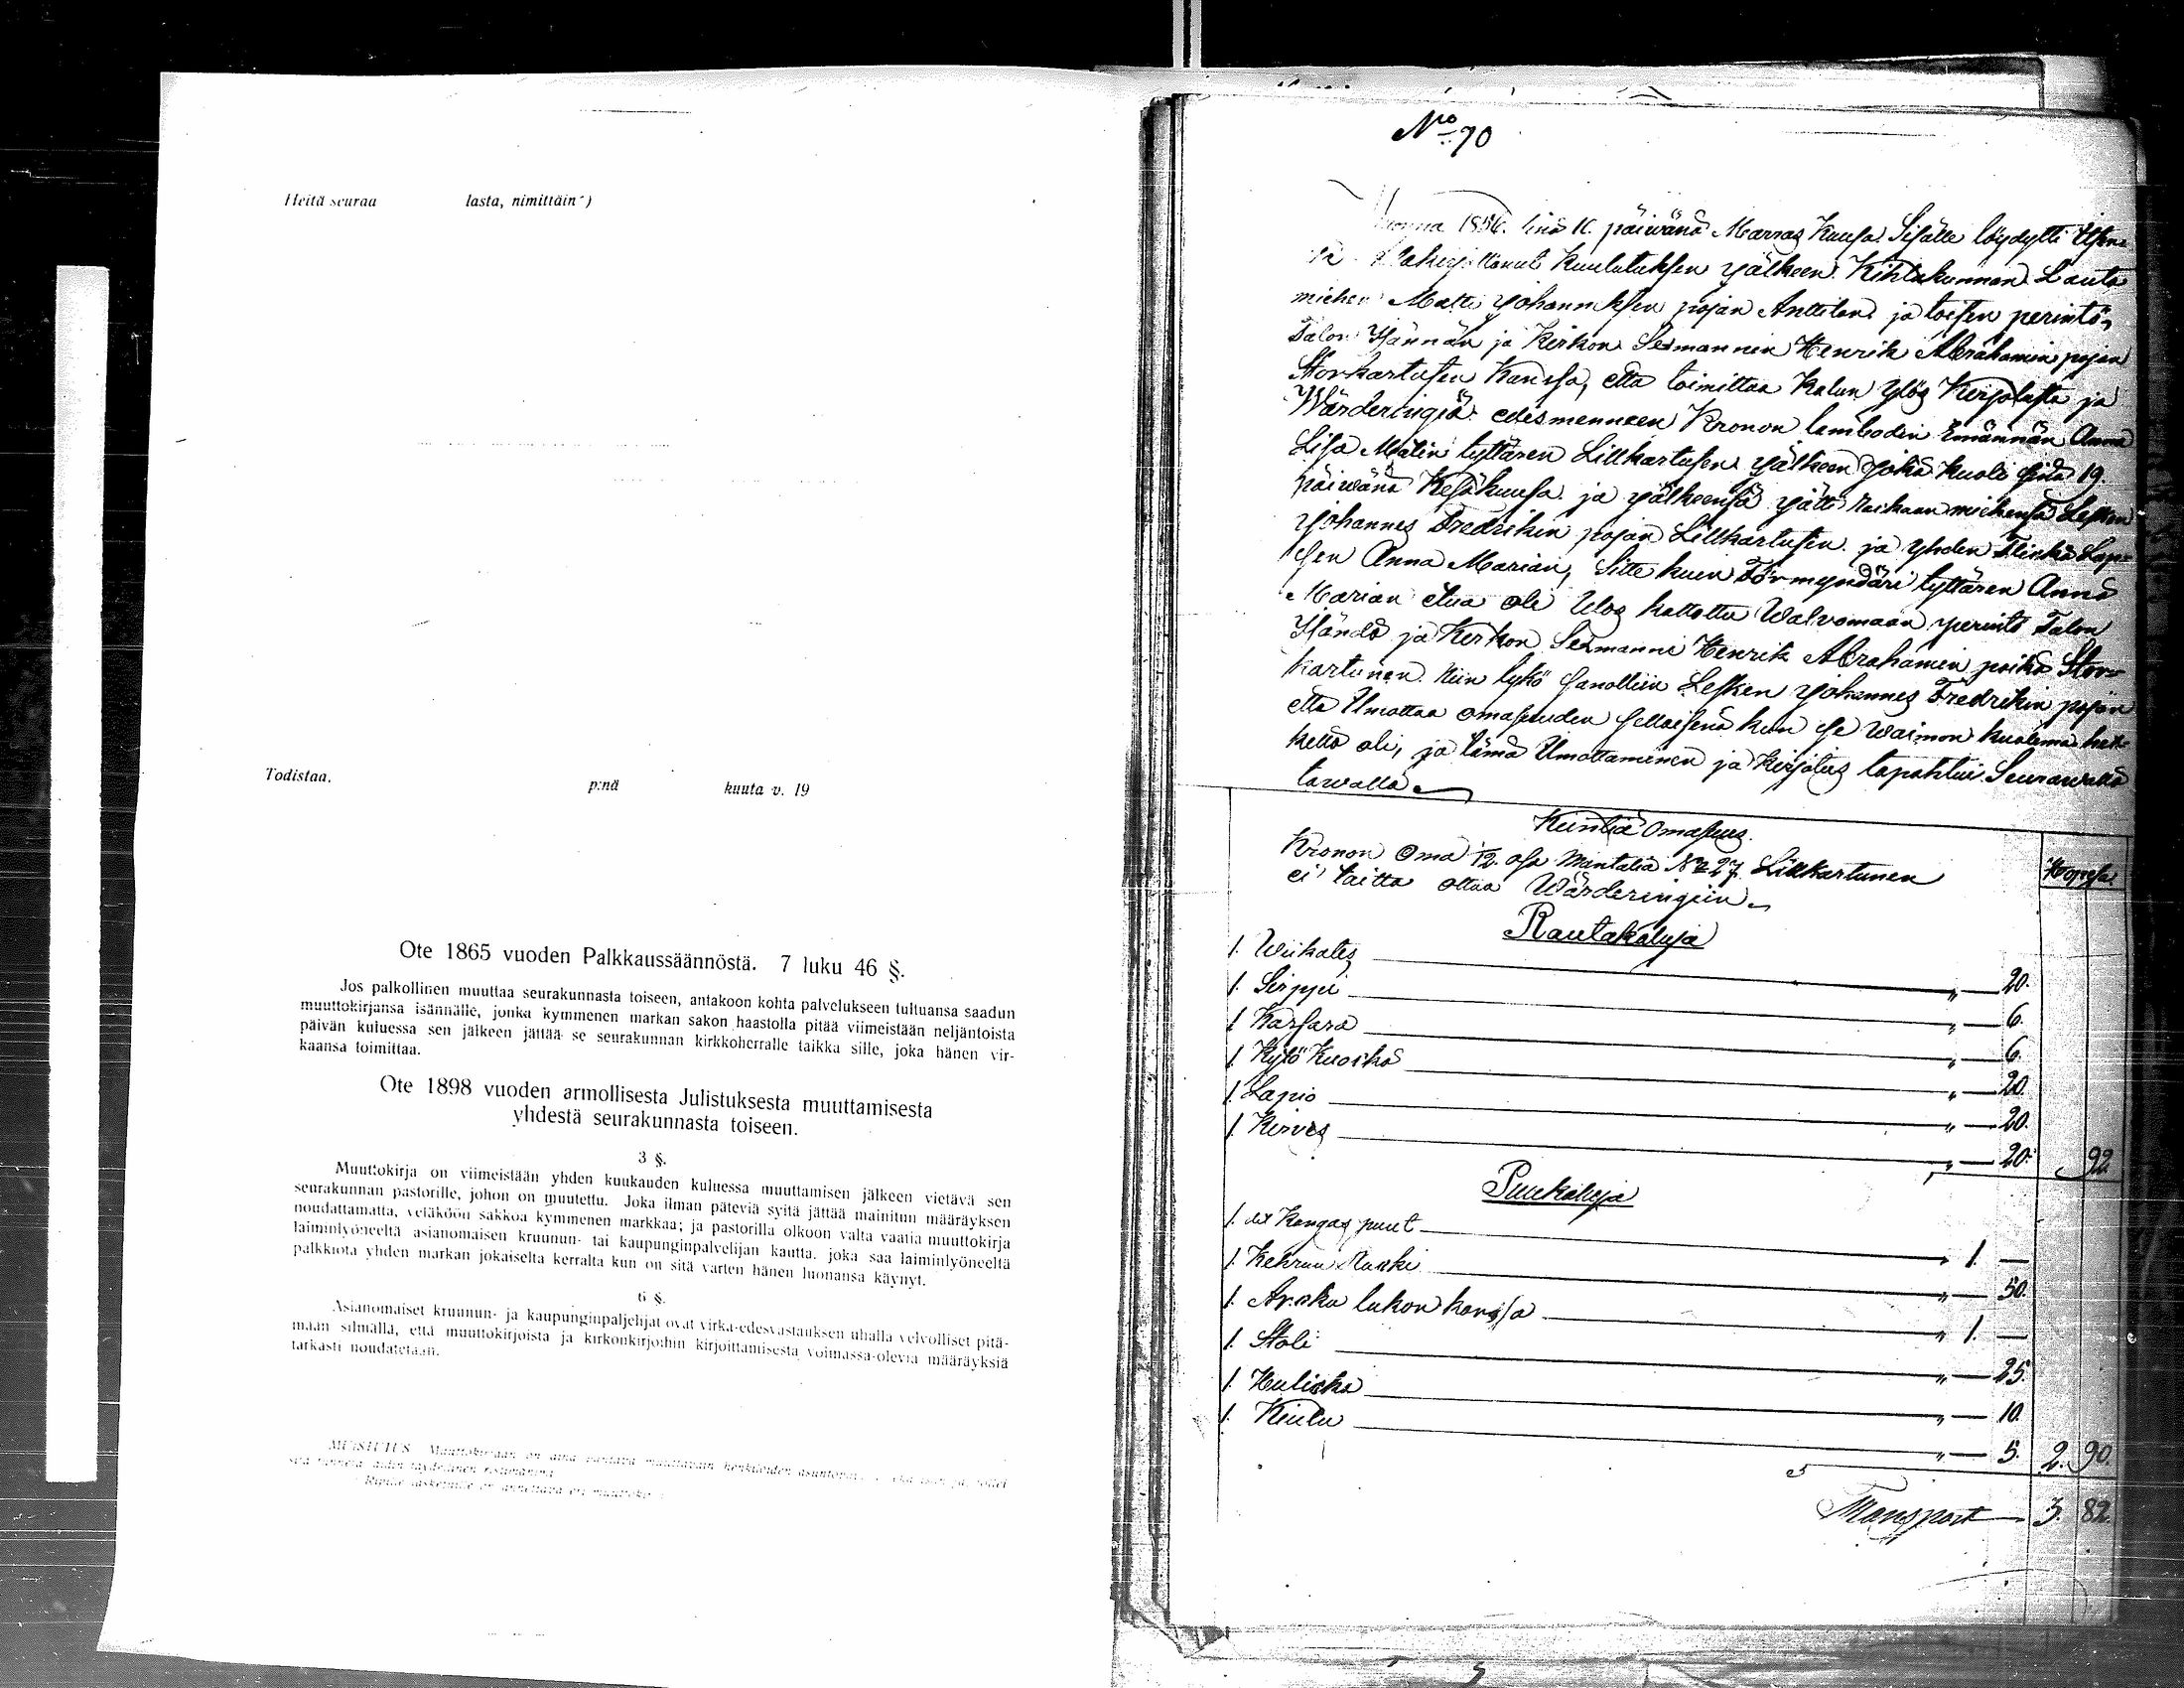 Heitä seuraa lasta, nimittäin*)
Todistaa.
p:nä kuuta v. 19
Ote 1865 vuoden Palkkaussäännöstä. 7 luku 46 §.
Jos palkollinen muuttaa seurakunnasta toiseen, antakoon kohta palvelukseen tultuansa saadun
muuttokirjansa isännälle, jonka kymmenen markan sakon haastolla pitää viimeistään neljäntoista
päivän kuluessa sen jälkeen jättää se seurakunnan kirkkoherralle taikka sille, joka hänen vir-
kaansa toimittaa.
Ote 1898 vuoden armollisesta Julistuksesta muuttamisesta
yhdestä seurakunnasta toiseen.
3 §.
Muuttokirja on viimeistään yhden kuukauden kuluessa muuttamisen jälkeen vietävä sen
seurakunnan pastorille, johon on muutettu. Joka ilman päteviä syitä jättää mainitun määräyksen
noudattamatta, vetäköön sakkoa kymmenen markkaa; ja pastorilla olkoon valta vaatia muuttokirja
laiminlyöneeltä asianomaisen kruunun- tai kaupunginpalvelijan kautta, joka saa laiminlyöneeltä
palkkiota yhden markan jokaiselta kerralta kun on sitä varten hänen luonansa käynyt.
6 §.
Asianomaiset kruunun- ja kaupunginpalvelijat ovat virka-edesvastauksen uhalla velvolliset pitä-
mään silmällä, että muuttokirjoista ja kirkonkirjoihin kirjoittamisesta voimassa-olevia määräyksiä
tarkasti noudatetaan.
MUISTUTUS. Muuttokirjaan on aina
No 70
Vuonna 1856. sinä 11. päiwänä Marras Kuusa. Sisälle löydytti
Kuulutuksen yälkeen Kihlakunnan Lauta
miehen Matti Johanneksen pojan Anttilan ja toisen perintö
Talon Ysännän ja Kirkon Sexmannin Henrik Abrahamin pojan
Storkartusen Kanssa, että toimittaa Kalun Ylös Kirjotusta ja
Wärderingiä edesmenneen Kronon lamboden Emännän Anna
Lisa Matin tyttären Lillkartusen yälkeen Joka Kuoli sinä 19.
päiwänä Kesäkuusa ja yälkeensä yätti miehensä Lesken
Johannes Fredrikin pojan Lillkartusen ja yhden Flicka Lap-
sen Anna Marian, Sitte kuin Förmyndäri tyttären Anna
Marian etua oli Ulos kattottu Walvomaan perintö Talon
Ysändä ja Kirkon Sexmanni Henrik Abrahamin poika Stor-
kartunen. Niin lykö sanottiin Lesken Johannes Fredrikin pojan
että Ilmottaa omasuuden sellaisena kuin se Waimon kuolema het-
kellä oli, ja tämä Ilmottaminen ja Kirjotus tapahtui Seurawalla
tawalla
Kiintiä Omasuus.
Kronon Oma 1/2. osa Mantalia No 27. Lillkartunen
ei taitta ottaa Wärderingiin. Hopesa.
Rautakaluja
1. Wiikates " — 20.
1. Sirppi " — 6.
1. Karsara " — 6.
1. Kytö Kuokka " — 20.
1. Lapio " — 20.
1. Kirves " — 20. 92
Puukaluja
1. Kangas puut " 1. —
1. Kehruu Rukki " — 50.
1. Arcku lukon kanssa " 1. —
1. Stoli " — 25.
1. Kulicka — 10.
1. Kiulu " — 5. 2. 90.
Transport — 3. 82.